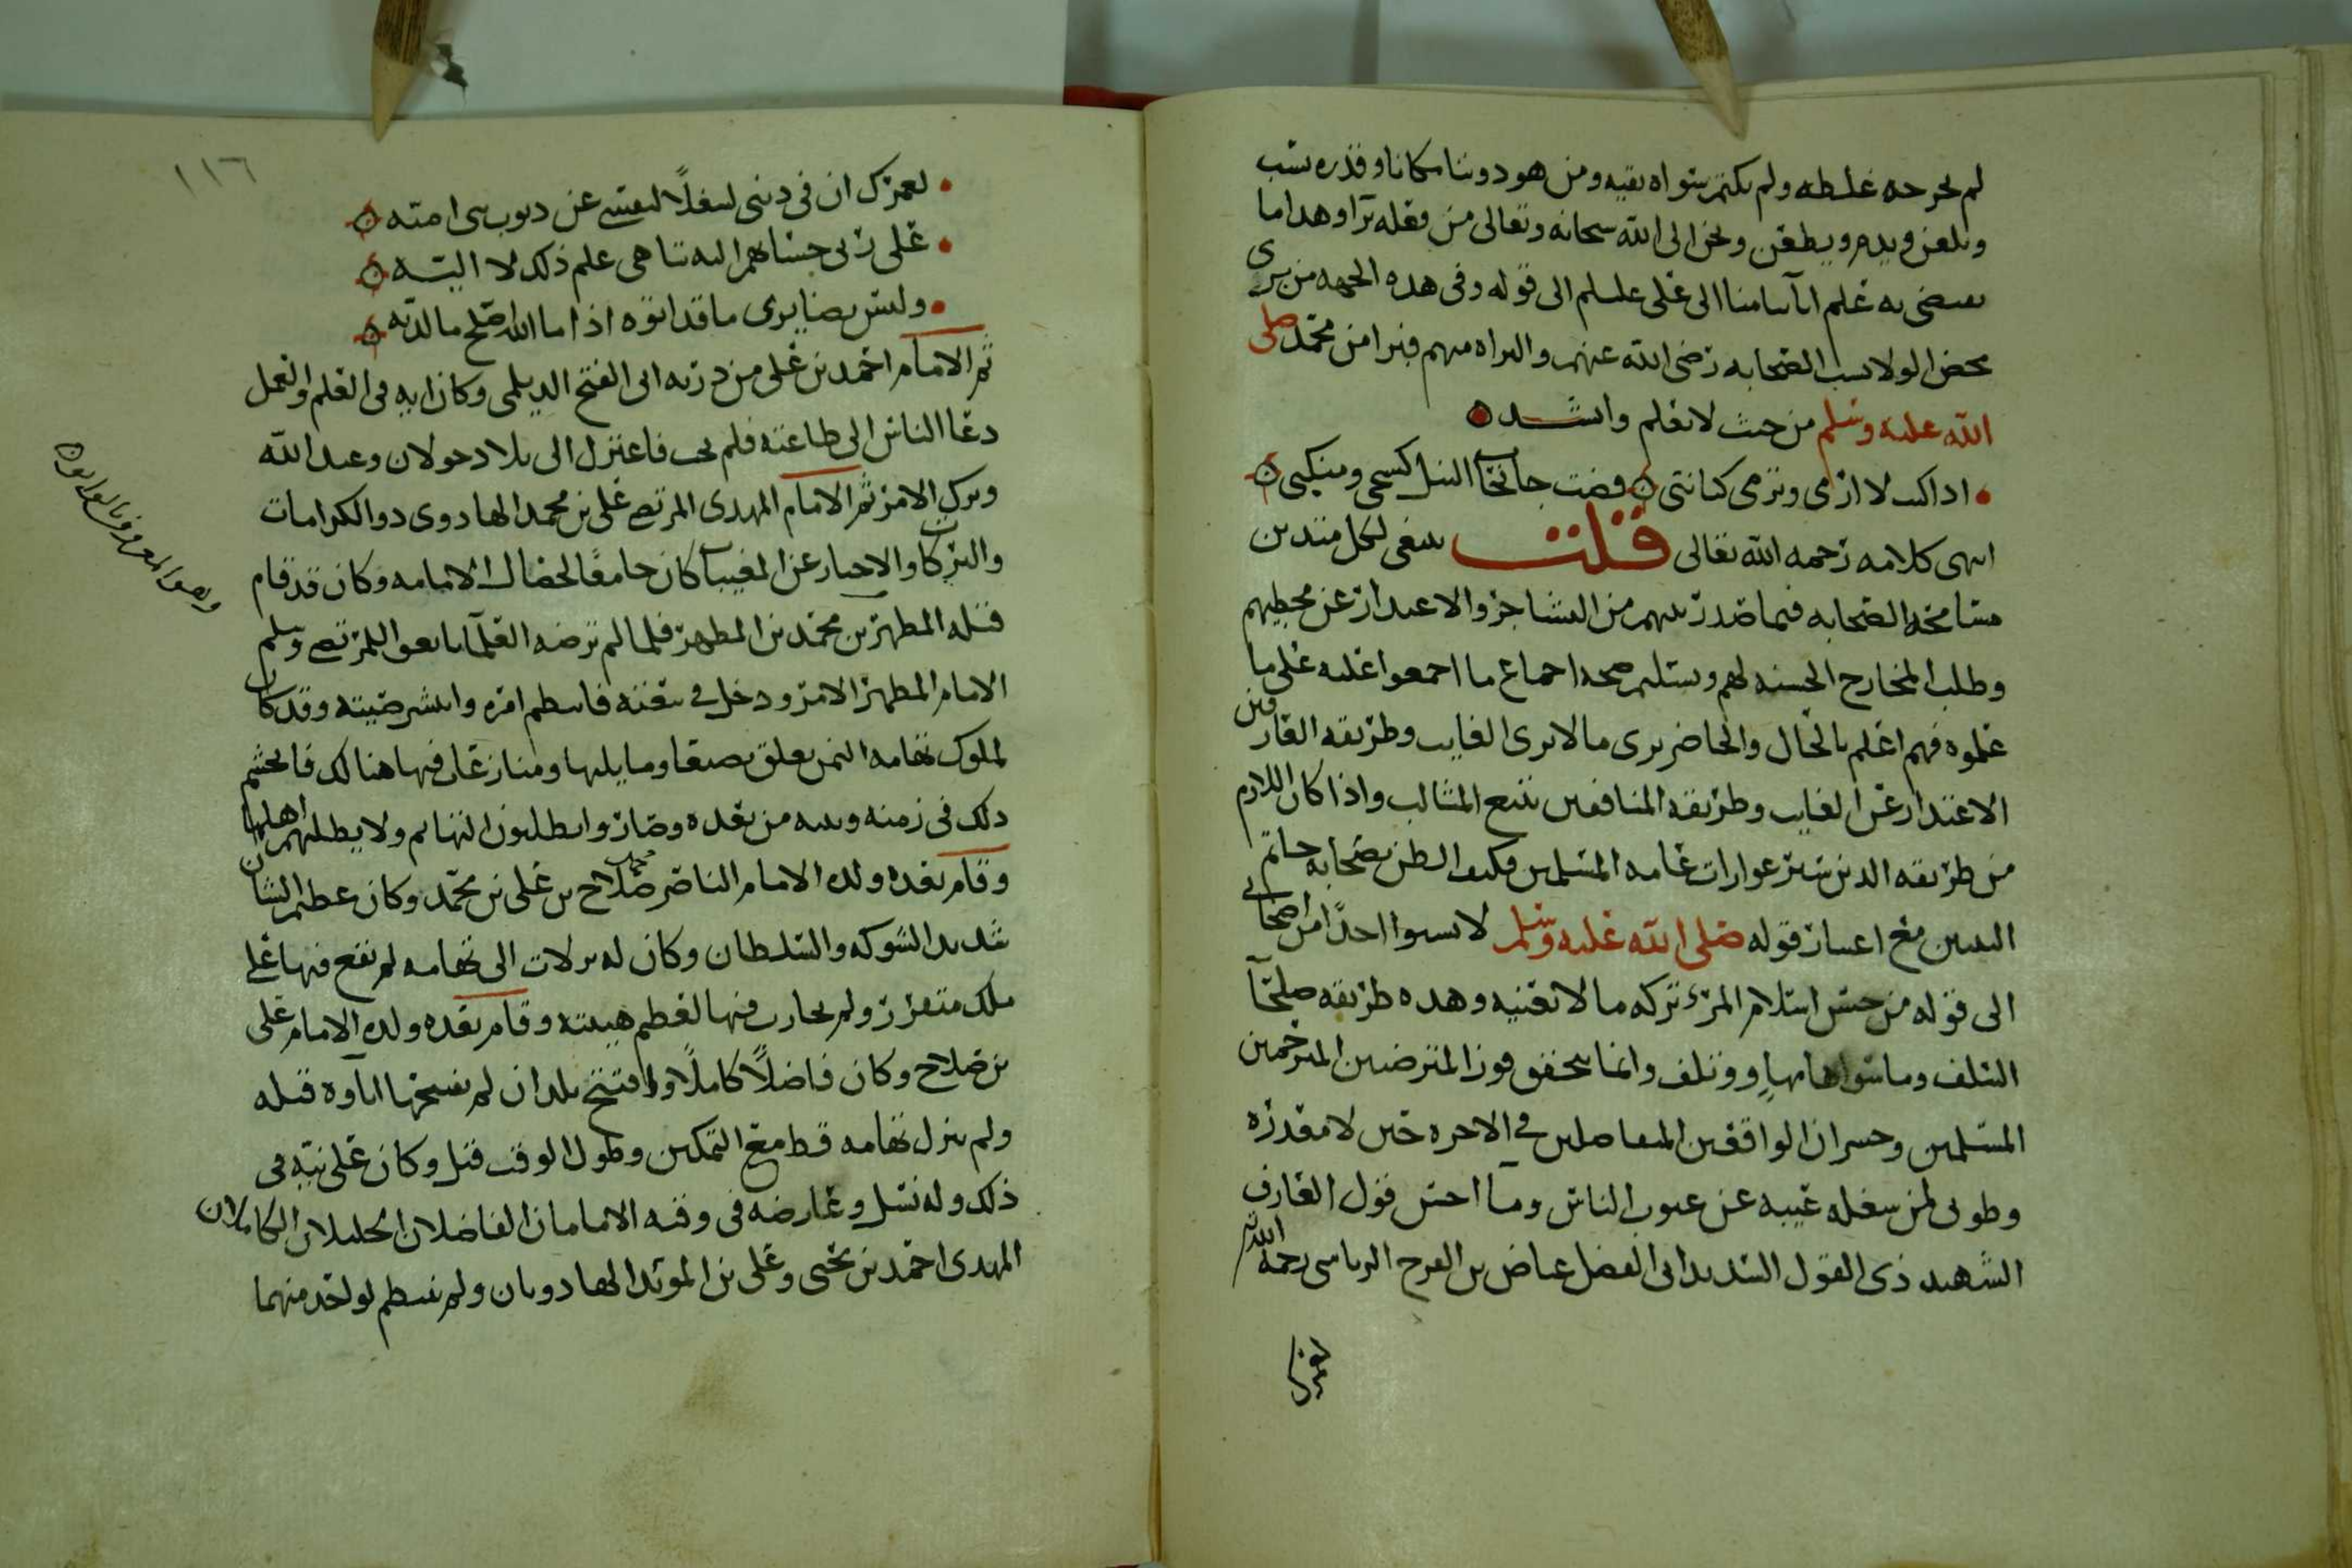 لم يخرجه غلطه ولم يكفر بتواه بقيه ومن هو دوننا مكانا وقدره يسب
ويلعن ويذم ويطعن ونحن الى الله سبحانه وتعالى من فعله برا وهذا ما
يقضى به علم ابائنا منا الى على علىلم الى قوله وفى هذه الجهه من يرى
محض الولا بسب الصحابه رضى الله عنهم والبراه منهم فبرا من محمد صلى
الله عليه وسلم من حيث لا يعلم وانشد
اذا كنت لا ارمى وترمى كنانتى فصب جانحات النبل كسحى ومنكبى
انتهى كلامه رحمه الله تعالى قلت ينبغى لكل متدين
مسامحه الصحابه فيما صدر بينهم من التشاجر والاعتذار عن مخطيهم
وطلب المخارج الحسنه لهم وتسليم صحه اجماع ما اجمعوا عليه على ما
علموه فهم اعلم بالحال والحاضر يرى ما لا يرى الغايب وطريقه العارفين
الاعتذار عن الغايب وطريقه المنافقين تتبع المثالب واذا كان اللازم
من طريقه الدين ستر عوارات عامه المسلمين فكيف الظن بصحابه خاتم
النبيين مع اعتبار قوله صلى الله عليه وسلم لا تسبوا احدا من اصحابى
الى قوله من حسن اسلام المرء تركه ما لا يعنيه وهذه طريقه صلحآ
السلف وما سواها مهاوٍ وتلف وانما يتحقق فوز المترضين المترحمين
المسلمين وخسران الواقفين المتعاملين فى الاخره حين لا مقدره
وطوبى لمن شغله عيبه عن عيوب الناس ومآ احسن قول العارف
الشهيد ذى القول السديد ابى الفضل عباض بن الفرح الرياسى رحمه الله
لعمرك
١١٦
لعمرك ان فى ذنبى لشغلًا لنفسى عن ذنوب بنى اميه
على ربى حسابهم اليه تناهى علم ذلك لا اليه
وليس بضايرى ما قد اتوه اذا ما الله اصلح ما لديه
ثم الامام احمد بن على من ذريه ابى الفتح الديلمى وكان ايه فى العلم والعمل
دعا الناس الى طاعته فلم يجب فاعتزل الى بلاد خولان وعبد الله
وترك الامر ثم الامام المهدى المرتضى على بن محمد الهادوى ذو الكرامات
والبركات والاخبار عن المغيبات كان جامعًا لخصال الامامه وكان قد قام
قبله المطهر بن محمد بن المطهر فلما لم ترضه العلمآ بايعوا للمرتضى وسلم
الامام المطهر الامر ودخل فى بيعته فانتظم امره وانتشر صيته وقد كان
لملوك تهامه اليمن تعلق بصنعا وما يليها ومنازعات فيها هنالك فانحسم
ذلك فى زمنه وبنيه من بعده وصاروا يطلبون التهايم ولا يطلبهم اهلها
وقام بعده ولده الامام الناصر صلاح بن على بن محمد وكان عظيم الشان
شديد الشوكه والسلطان وكان له نزلات الى تهامه لم يقع فيها على
ملك متقرر ولم يحارب فيها لعظم هيبته وقام بعده ولده الامام على
بن صلاح وكان فاضلًا كاملًا وافتتح بلدان لم يفتحها ابآوه قبله
ولم ينزل تهامه قط مع التمكين وطول الوقت قيل وكان على نيه فى
ذلك وله نسل وعارضه فى وقته الامامان الفاضلان الجليلان الكاملان
المهدى احمد بن يحيى وعلى بن المويد الهادويان ولم ينتظم لواحد منهما